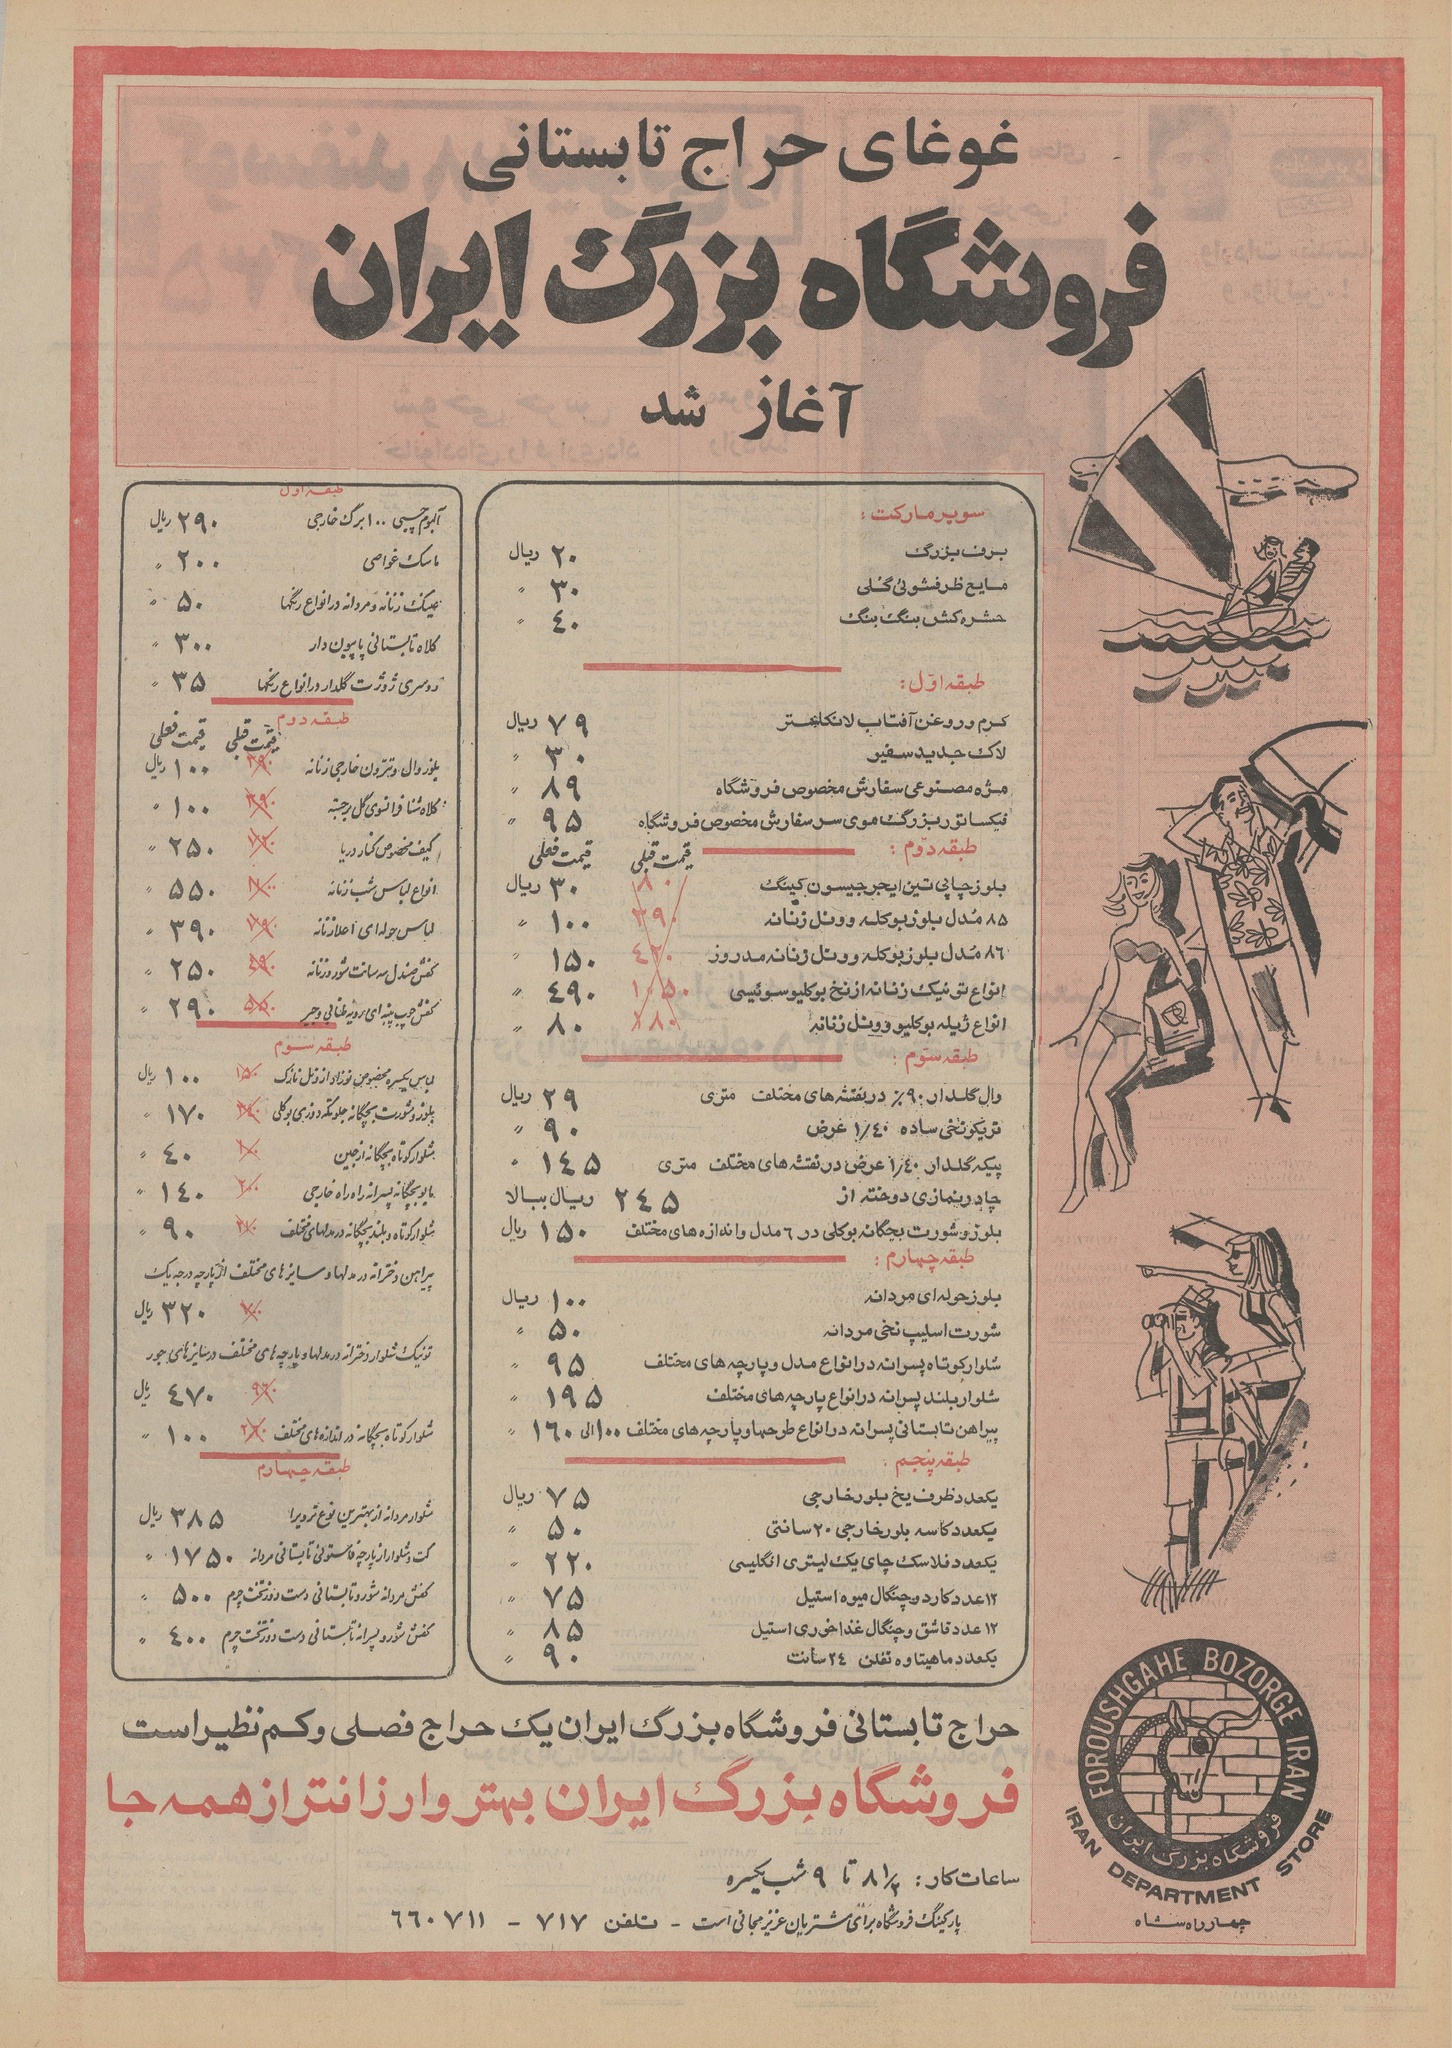 غوغای حراج تابستانی
فروشگاه بزرگ ایران
آغاز شد
سوپر مارکت :
برف بزرگ ۲۰ ریال
مایع ظرفشوئی گلی ۳۰ "
حشره کش بنگ بنگ ۴۰ "
طبقه اول :
کرم و روغن آفتاب لانکاستر ۷۹ ریال
لاک جدید سفیر ۳۰ "
مژه مصنوعی سفارش مخصوص فروشگاه ۸۹ "
فیکساتور بزرگ موی سر سفارش مخصوص فروشگاه ۹۵ "
طبقه دوم : قیمت قبلی قیمت فعلی
بلوز چاپی تین ایجر جیسون کینگ ۸۰ ۳۰ ریال
۸۵ مدل بلوز بوکله و ونل زنانه ۳۹۰ ۱۰۰ "
۸۶ مدل بلوز بوکله و ونل زنانه مد روز ۴۲۰ ۱۵۰ "
انواع تونیک زنانه از نخ بوکلیو سوئیسی ۱۰۵۰ ۴۹۰ "
انواع ژیله بوکلیو و ونل زنانه ۱۸۰ ۸۰ "
طبقه سوم :
وال گلدار ۹۰٪ در نقشه های مختلف متری ۲۹ ریال
تریکو نخی ساده ۱/۴۰ عرض ۹۰ "
پیکه گلدار ۱/۴۰ عرض در نقشه های مختلف متری ۱۴۵ "
چادر نمازی دوخته از ۲۴۵ ریال ببالا
بلوز و شورت بچگانه بوکلی در ۶ مدل و اندازه های مختلف ۱۵۰ ریال
طبقه چهارم :
بلوز حوله ای مردانه ۱۰۰ ریال
شورت اسلیپ نخی مردانه ۵۰ "
شلوار کوتاه پسرانه در انواع مدل و پارچه های مختلف ۹۵ "
شلوار بلند پسرانه در انواع پارچه های مختلف ۱۹۵ "
پیراهن تابستانی پسرانه در انواع طرحها و پارچه های مختلف ۱۰۰ الی ۱۶۰ "
طبقه پنجم :
یکعدد ظرف یخ بلور خارجی ۷۵ ریال
یکعدد کاسه بلور خارجی ۲۰ سانتی ۵۰ "
یکعدد فلاسک چای یک لیتری انگلیسی ۲۲۰ "
۱۲ عدد کارد و چنگال میوه استیل ۷۵ "
۱۲ عدد قاشق و چنگال غذاخوری استیل ۸۵ "
یکعدد ماهیتاوه تفلن ۲۴ سانت ۹۰ "
طبقه اول
آلبوم چسبی ۱۰۰ برگ خارجی ۲۹۰ ریال
ماسک غواصی ۲۰۰ "
عینک زنانه و مردانه در انواع رنگها ۵۰ "
کلاه تابستانی پاپیون دار ۳۰۰ "
روسری ژورژت گلدار در انواع رنگها ۳۵ "
طبقه دوم
قیمت قبلی قیمت فعلی
بلوز وال و تترون خارجی زنانه ۲۹۰ ۱۰۰ ریال
کلاه شنا فرانسوی گل برجسته ۲۹۰ ۱۰۰ "
کیف مخصوص کنار دریا ۲۵۰ "
انواع لباس شب زنانه ۵۵۰ "
لباس حوله ای اعلا زنانه ۳۹۰ "
کفش صندل سه سانت شورو زنانه ۲۵۰ "
کفش چوب پنبه ای رویه طنابی و جیر ۲۹۰ "
طبقه سوم
لباس یکسره مخصوص نوزاد از ونل نازک ۱۵۰ ۱۰۰ ریال
بلوز و شورت بچگانه جلو تکه دوزی بوکلی ۱۷۰ "
شلوار کوتاه بچگانه از جین ۴۰ "
مایو بچگانه پسرانه راه راه خارجی ۲۰۰ ۱۴۰ "
شلوار کوتاه و بلند بچگانه در مدلهای مختلف ۹۰ "
پیراهن دخترانه در مدلها و سایزهای مختلف از پارچه درجه یک
۳۲۰ ریال
تونیک شلوار دخترانه در مدلها و پارچه های مختلف در سایزهای جور
۹۶۰ ۴۷۰ ریال
شلوار کوتاه بچگانه در اندازه های مختلف ۱۰۰ "
طبقه چهارم
شلوار مردانه از بهترین نوع ترویرا ۳۸۵ ریال
کت و شلوار از پارچه فاستونی تابستانی مردانه ۱۷۵۰ "
کفش مردانه شورو تابستانی دست دوز تخت چرم ۵۰۰ "
کفش شورو پسرانه تابستانی دست دوز تخت چرم ۴۰۰ "
حراج تابستانی فروشگاه بزرگ ایران یک حراج فصلی و کم نظیر است
فروشگاه بزرگ ایران بهتر و ارزانتر از همه جا
ساعات کار : ۸ ۱/۲ تا ۹ شب یکسره
پارکینگ فروشگاه برای مشتریان عزیز مجانی است - تلفن ۷۱۷ - ۶۶۰۷۱۱
FOROUSHGAHE BOZORGE IRAN
فروشگاه بزرگ ایران
IRAN DEPARTMENT STORE
چهار راه شاه